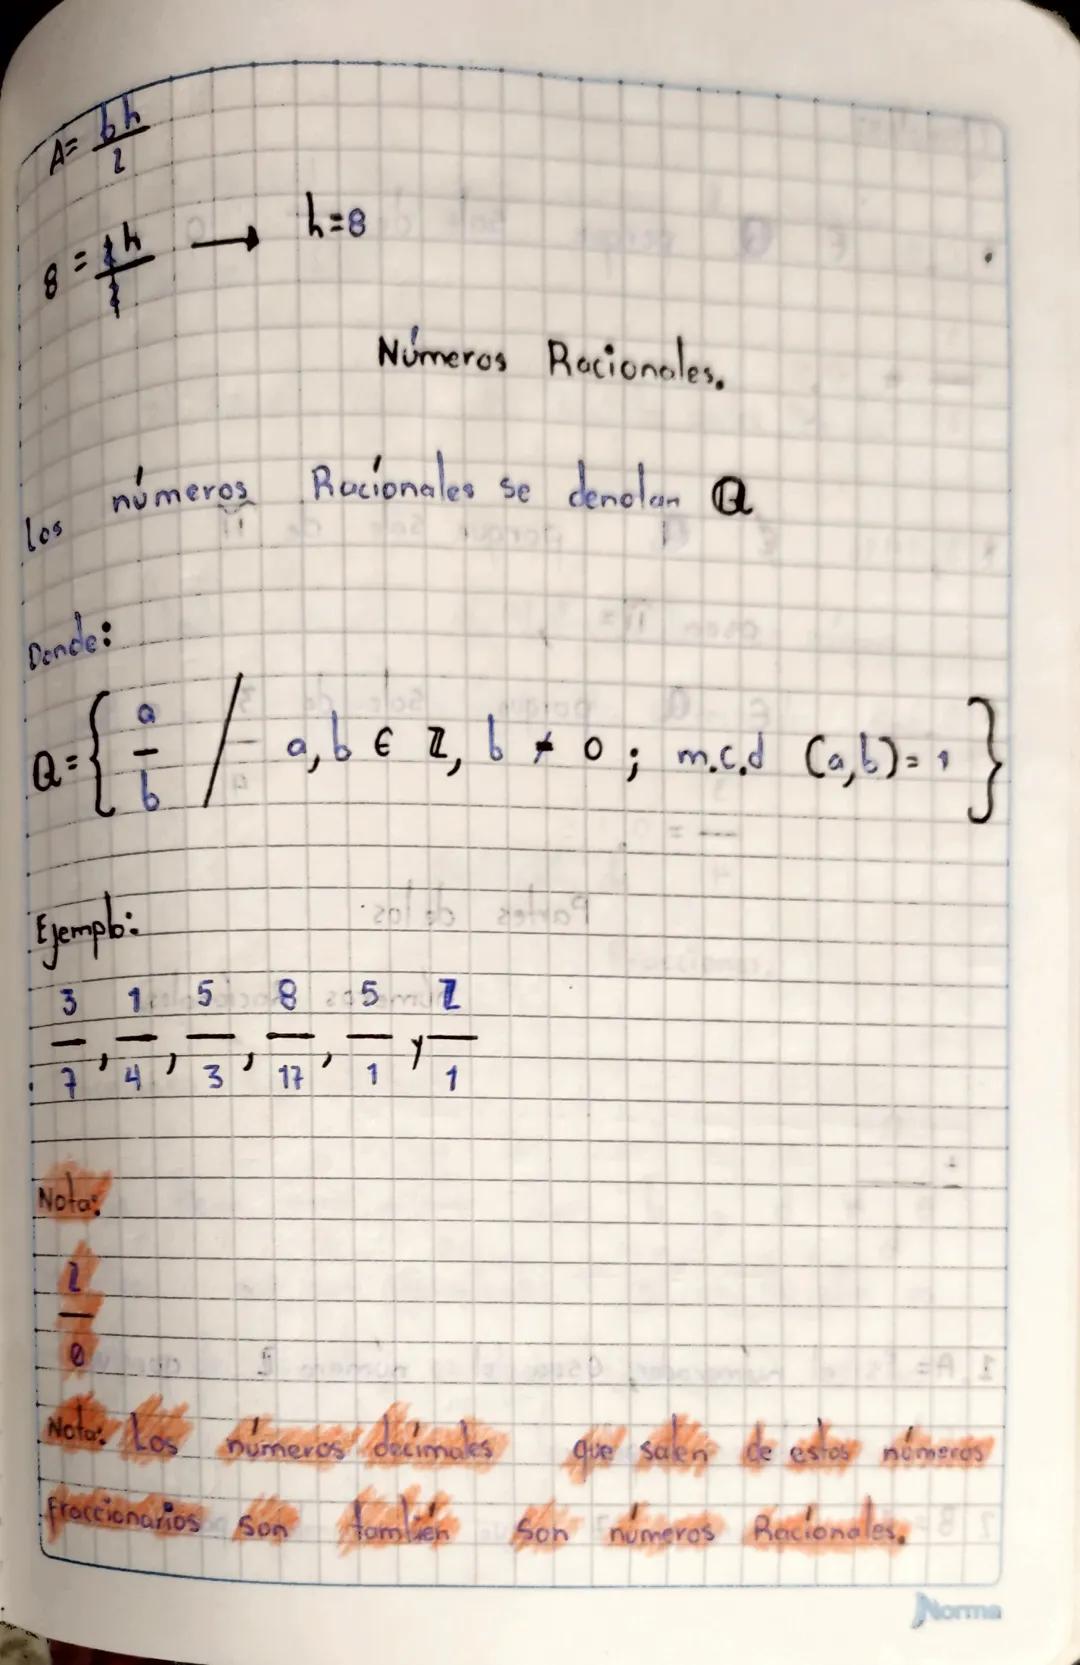 A= bh/2
8 = 2h/2 → h=8
Números Racionales.
los números Racionales se denotan Q
Donde:
Q = { a/b / a, b ∈ Z, b ≠ 0 ; m.c.d (a,b)= 1 }
Ejemplo:
3/7 , 1/4 , 5/3 , 8/17 , 5/1 y 2/1
Nota:
2/0
Nota: Los números decimales que salen de estos números
fraccionarios son también son números Racionales.
Norma